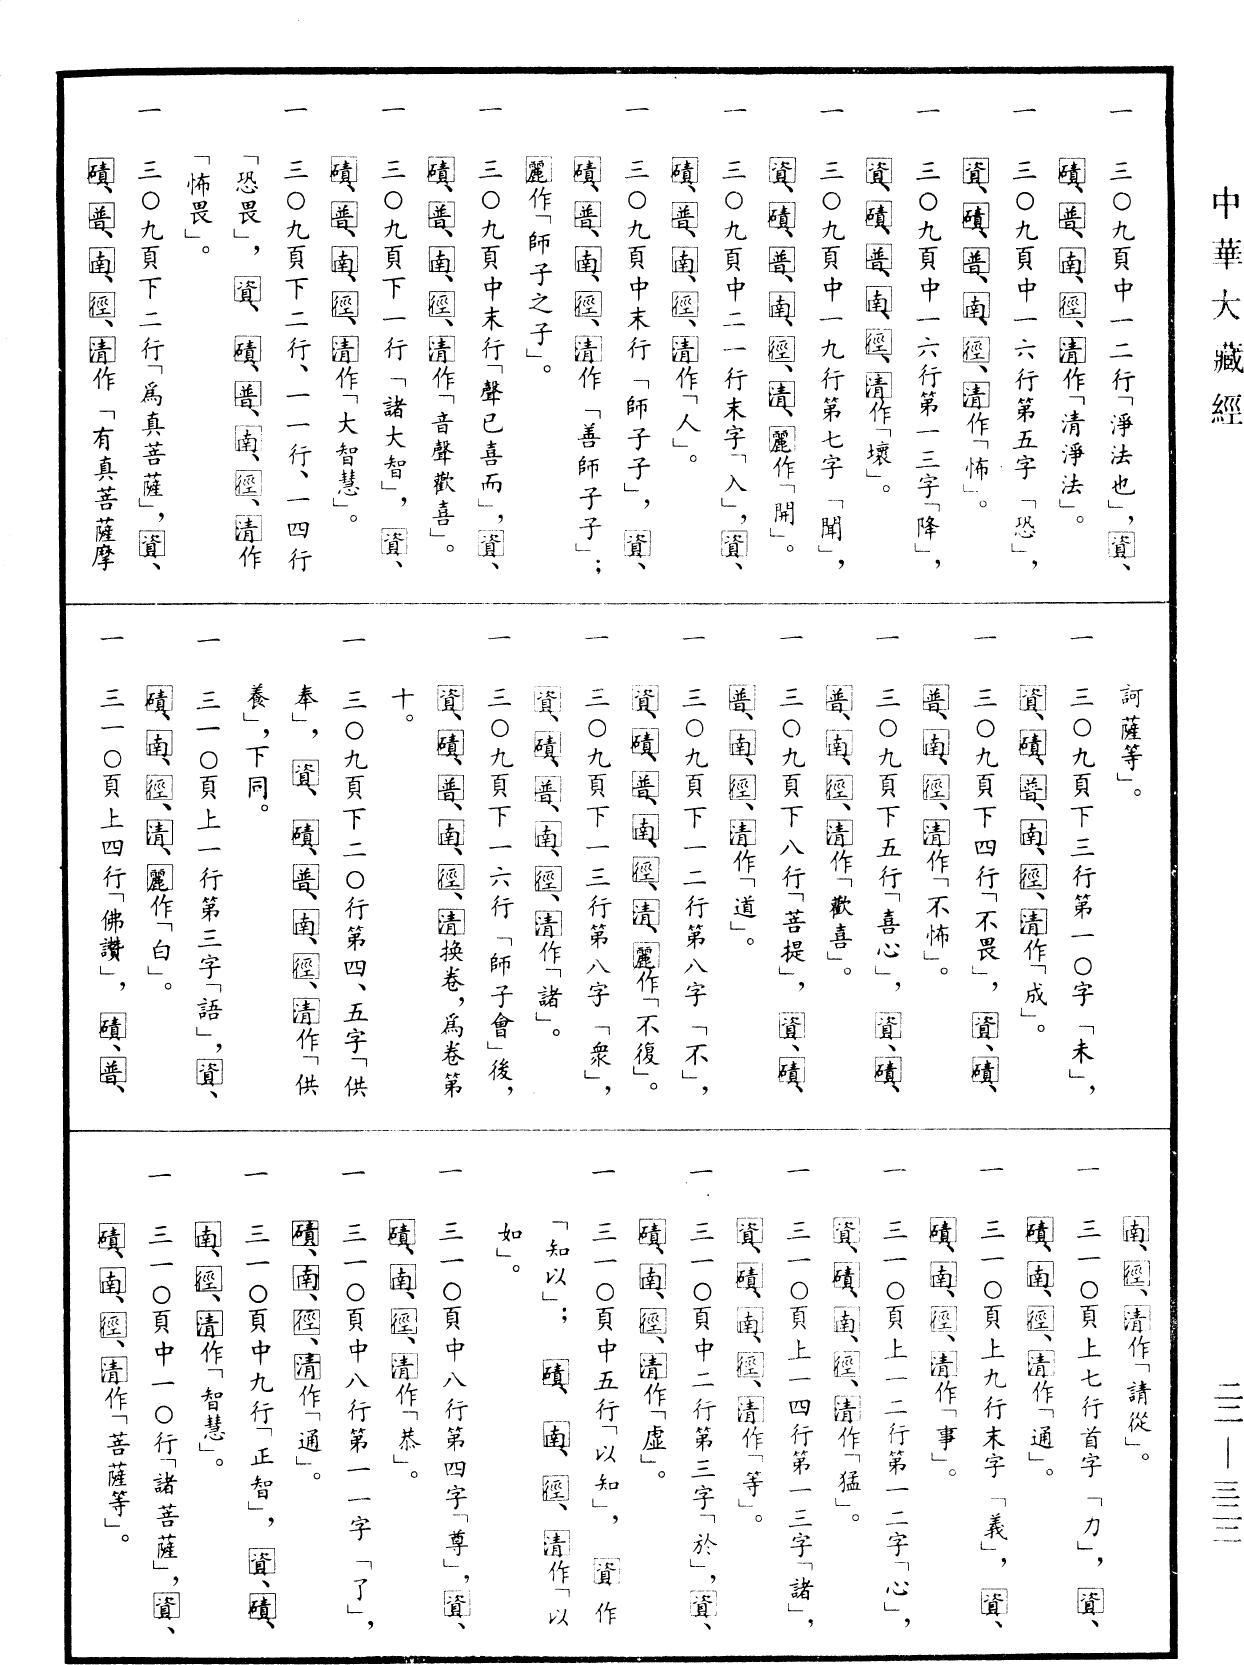 中華大藏經
一　三〇九頁中一二行「淨法也」，資、
磧、普、南、徑、清作「清淨法」。
一　三〇九頁中一六行第五字「恐」，
資、磧、普、南、徑、清作「怖」。
一　三〇九頁中一六行第一三字「降」，
資、磧、普、南、徑、清作「壞」。
一　三〇九頁中一九行第七字「聞」，
資、磧、普、南、徑、清、麗作「開」。
一　三〇九頁中二一行末字「入」，資、
磧、普、南、徑、清作「人」。
一　三〇九頁中末行「師子子」，資、
磧、普、南、徑、清作「善師子子」；
麗作「師子之子」。
一　三〇九頁中末行「聲已喜而」，資、
磧、普、南、徑、清作「音聲歡喜」。
一　三〇九頁下一行「諸大智」，資、
磧、普、南、徑、清作「大智慧」。
一　三〇九頁下二行、一一行、一四行
「恐畏」，資、磧、普、南、徑、清作
「怖畏」。
一　三〇九頁下二行「爲真菩薩」，資、
磧、普、南、徑、清作「有真菩薩摩
訶薩等」。
一　三〇九頁下三行第一〇字「未」，
資、磧、普、南、徑、清作「成」。
一　三〇九頁下四行「不畏」，資、磧、
普、南、徑、清作「不怖」。
一　三〇九頁下五行「喜心」，資、磧、
普、南、徑、清作「歡喜」。
一　三〇九頁下八行「菩提」，資、磧、
普、南、徑、清作「道」。
一　三〇九頁下一二行第八字「不」，
資、磧、普、南、徑、清、麗作「不復」。
一　三〇九頁下一三行第八字「衆」，
資、磧、普、南、徑、清作「諸」。
一　三〇九頁下一六行「師子會」後，
資、磧、普、南、徑、清換卷，爲卷第
十。
一　三〇九頁下二〇行第四、五字「供
奉」，資、磧、普、南、徑、清作「供
養」，下同。
一　三一〇頁上一行第三字「語」，資、
磧、南、徑、清、麗作「白」。
一　三一〇頁上四行「佛讚」，磧、普、
南、徑、清作「請從」。
一　三一〇頁上七行首字「力」，資、
磧、南、徑、清作「通」。
一　三一〇頁上九行末字「義」，資、
磧、南、徑、清作「事」。
一　三一〇頁上一二行第一二字「心」，
資、磧、南、徑、清作「猛」。
一　三一〇頁上一四行第一三字「諸」，
資、磧、南、徑、清作「等」。
一　三一〇頁中二行第三字「於」，資、
磧、南、徑、清作「虛」。
一　三一〇頁中五行「以知」，資作
「知以」；磧、南、徑、清作「以
如」。
一　三一〇頁中八行第四字「尊」，資、
磧、南、徑、清作「恭」。
一　三一〇頁中八行第一一字「了」，
磧、南、徑、清作「通」。
一　三一〇頁中九行「正智」，資、磧、
南、徑、清作「智慧」。
一　三一〇頁中一〇行「諸菩薩」，資、
磧、南、徑、清作「菩薩等」。
二二—三二二